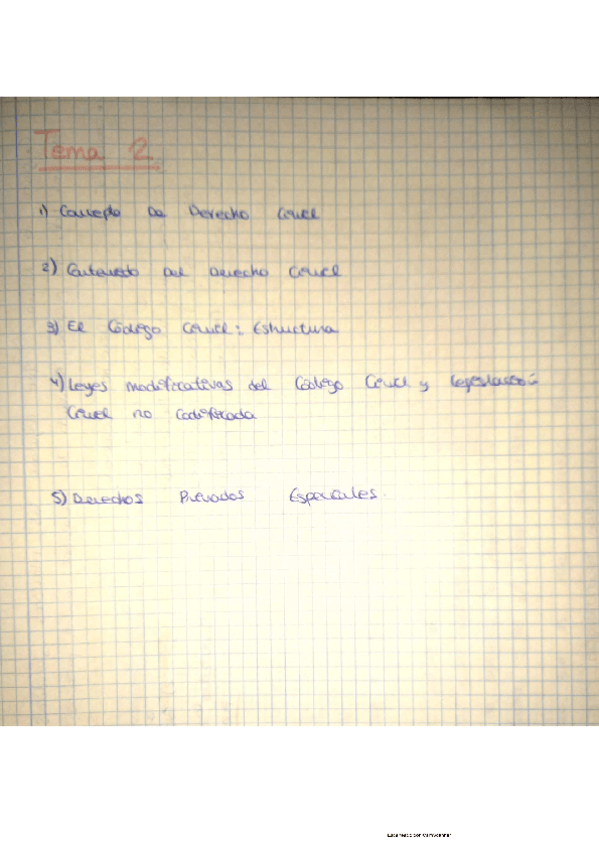 Tema 2
1) Concepto De Derecho Civil
2) Contenido Del Derecho Civil
3) El Código Civil: Estructura
4) Leyes modificativas del Código Civil y Legislación
Civil no Codificada
5) Derechos Privados Especiales.
Escaneado con CamScanner